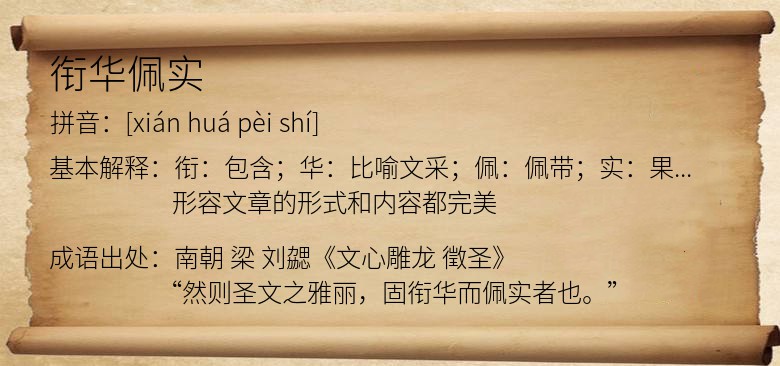 衔华佩实
拼音：[xián huá pèi shí]
基本解释：衔：包含；华：比喻文采；佩：佩带；实：果...
形容文章的形式和内容都完美
成语出处：南朝 梁 刘勰《文心雕龙 徵圣》
“然则圣文之雅丽，固衔华而佩实者也。”